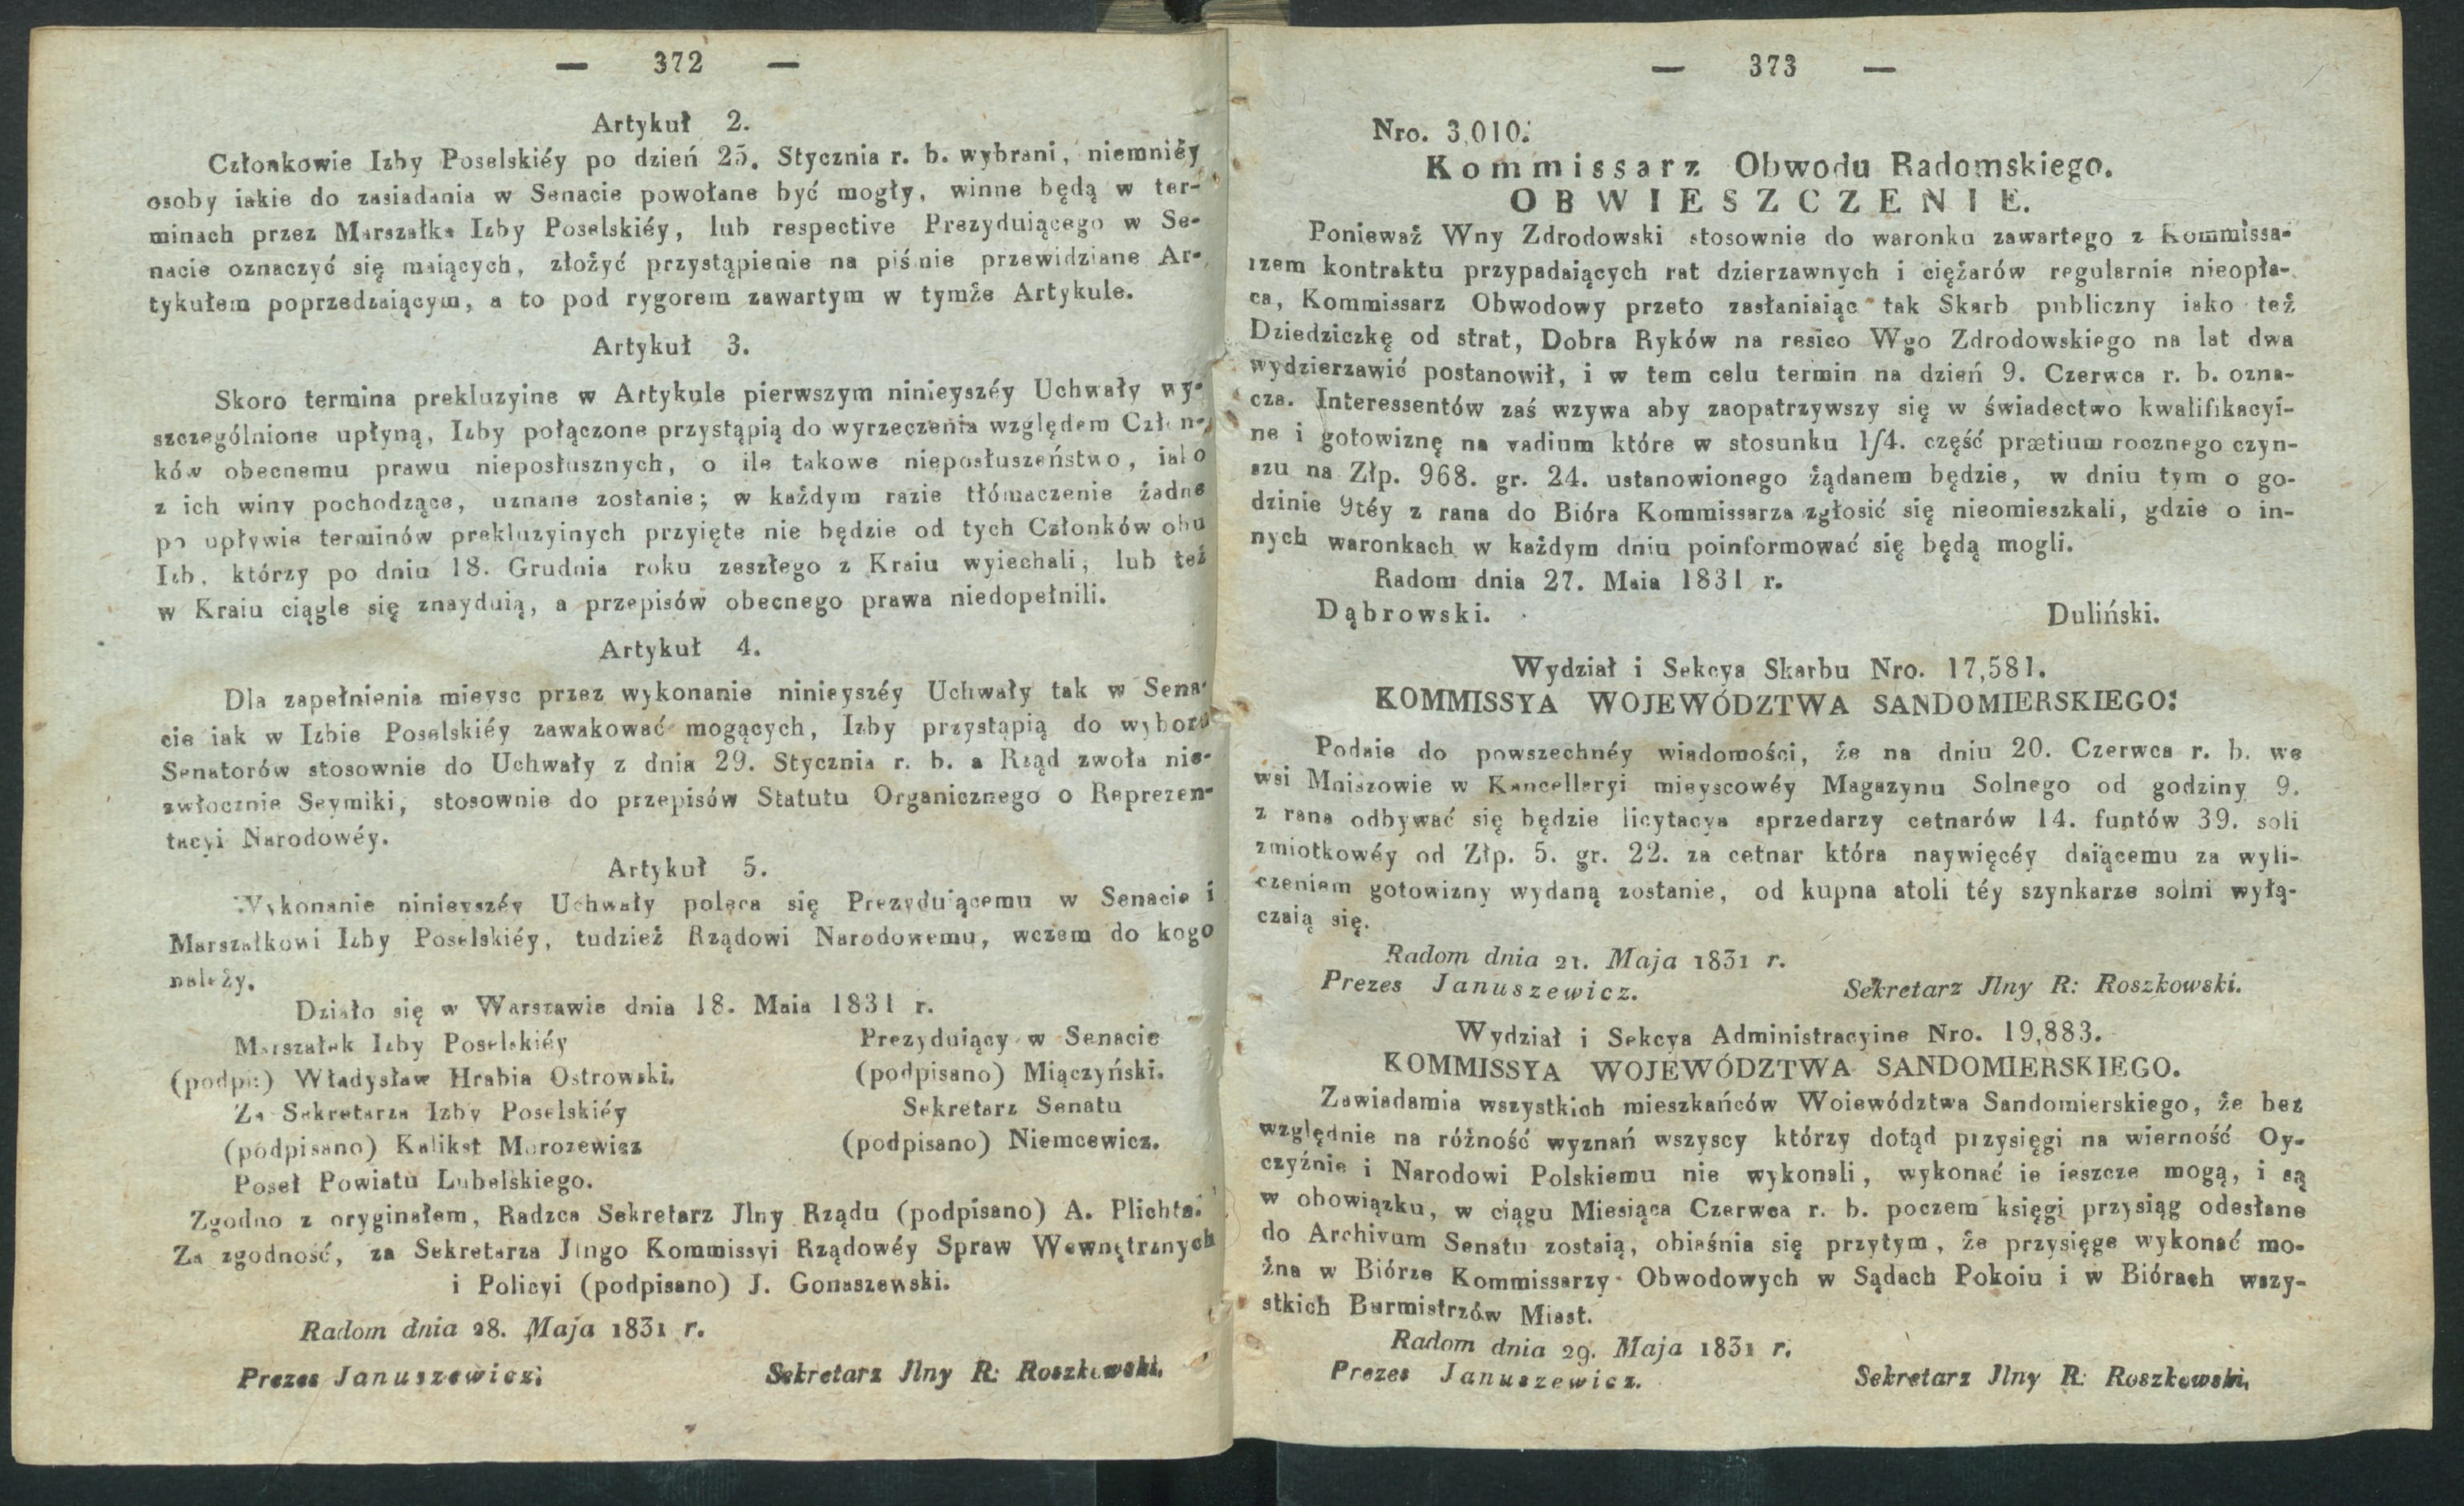 — 372 —
Artykuł 2.
Członkowie Izby Poselskiéy po dzień 25. Stycznia r. b. wybrani, niemniéy
osoby iakie do zasiadania w Senacie powołane być mogły, winne będą w ter-
minach przez Marszałka Izby Poselskiéy, lub respective Prezyduiącego w Se-
nacie oznaczyć się maiących, złożyć przystąpienie na piśnie przewidziane Ar-
tykułem poprzedzaiącym, a to pod rygorem zawartym w tymże Artykule.
Artykuł 3.
Skoro termina prekluzyine w Artykule pierwszym ninieyszéy Uchwały wy-
szczególnione upłyną, Izby połączone przystąpią do wyrzeczenia względem Człon-
ków obecnemu prawu nieposłusznych, o ile takowe nieposłuszeństwo, iako
z ich winy pochodzące, uznane zostanie; w każdym razie tłómaczenie żadne
po upływie terminów prekluzyinych przyięte nie będzie od tych Członków obu
Izb, którzy po dniu 18. Grudnia roku zeszłego z Kraiu wyiechali, lub też
w Kraiu ciągle się znayduią, a przepisów obecnego prawa niedopełnili.
Artykuł 4.
Dla zapełnienia mieysc przez wykonanie ninieyszéy Uchwały tak w Sena-
cie iak w Izbie Poselskiéy zawakować mogących, Izby przystąpią do wyboru
Senatorów stosownie do Uchwały z dnia 29. Stycznia r. b. a Rząd zwoła nie-
zwłocznie Seymiki, stosownie do przepisów Statutu Organicznego o Reprezen-
tacyi Narodowéy.
Artykuł 5.
Wykonanie ninieyszéy Uchwały poleca się Prezyduiącemu w Senacie i
Marszałkowi Izby Poselskiéy, tudzież Rządowi Narodowemu, wczem do kogo
należy.
Działo się w Warszawie dnia 18. Maia 1831 r.
Marszałek Izby Poselskiéy
(podpis:) Władysław Hrabia Ostrowski.
Za Sekretarza Izby Poselskiéy
(podpisano) Kalikst Morozewicz
Poseł Powiatu Lubelskiego.
Prezyduiący w Senacie
(podpisano) Miączyński.
Sekretarz Senatu
(podpisano) Niemcewicz.
Zgodno z oryginałem, Radzca Sekretarz Jlny Rządu (podpisano) A. Plichta.
Za zgodność, za Sekretarza Jlngo Kommissyi Rządowéy Spraw Wewnętrznych
i Policyi (podpisano) J. Gonaszewski.
Radom dnia 28. Maja 1831 r.
Prezes Januszewicz. Sekretarz Jlny R: Roszkowski.
— 373 —
Nro. 3,010.
Kommissarz Obwodu Radomskiego.
OBWIESZCZENIE.
Ponieważ Wny Zdrodowski stosownie do waronku zawartego z Kommissa-
rzem kontraktu przypadaiących rat dzierzawnych i ciężarów regularnie nieopła-
ca, Kommissarz Obwodowy przeto zasłaniaiąc tak Skarb publiczny iako też
Dziedziczkę od strat, Dobra Ryków na resico Wgo Zdrodowskiego na lat dwa
wydzierzawić postanowił, i w tem celu termin na dzień 9. Czerwca r. b. ozna-
cza. Interessentów zaś wzywa aby zaopatrzywszy się w świadectwo kwalifikacyi-
ne i gotowiznę na vadium które w stosunku 1/4. część prætium rocznego czyn-
szu na Złp. 968. gr. 24. ustanowionego żądanem będzie, w dniu tym o go-
dzinie 9téy z rana do Bióra Kommissarza zgłosić się nieomieszkali, gdzie o in-
nych waronkach w każdym dniu poinformować się będą mogli.
Radom dnia 27. Maia 1831 r.
Dąbrowski. Duliński.
Wydział i Sekcya Skarbu Nro. 17,581.
KOMMISSYA WOJEWÓDZTWA SANDOMIERSKIEGO:
Podaie do powszechnéy wiadomości, że na dniu 20. Czerwca r. b. we
wsi Mniszowie w Kancellaryi mieyscowéy Magazynu Solnego od godziny 9.
z rana odbywać się będzie licytacya sprzedarzy cetnarów 14. funtów 39. soli
zmiotkowéy od Złp. 5. gr. 22. za cetnar która naywięcéy daiącemu za wyli-
czeniem gotowizny wydaną zostanie, od kupna atoli téy szynkarze solni wyłą-
czaią się.
Radom dnia 21. Maja 1831 r.
Prezes Januszewicz. Sekretarz Jlny R: Roszkowski.
Wydział i Sekcya Administracyine Nro. 19,883.
KOMMISSYA WOJEWÓDZTWA SANDOMIERSKIEGO.
Zawiadamia wszystkich mieszkańców Woiewództwa Sandomierskiego, że bez
względnie na różność wyznań wszyscy którzy dotąd przysięgi na wierność Oy-
czyźnie i Narodowi Polskiemu nie wykonali, wykonać ie ieszcze mogą, i są
w obowiązku, w ciągu Miesiąca Czerwca r. b. poczem księgi przysiąg odesłane
do Archivum Senatu zostaią, obiaśnia się przytym, że przysięge wykonać mo-
żna w Biórze Kommissarzy Obwodowych w Sądach Pokoiu i w Biórach wszy-
stkich Burmistrzów Miast.
Radom dnia 29. Maja 1831 r.
Prezes Januszewicz. Sekretarz Jlny R: Roszkowski.